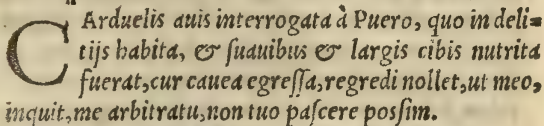 CArduelis auis interrogata à Puero, quo in deli=
tijs habita, & ſuauibus & largis cibis nutrita
fuerat,cur cauea egreſſa,regredi nollet,ut meo,
inquit,me arbitratu,non tuo paſcere poſſim.